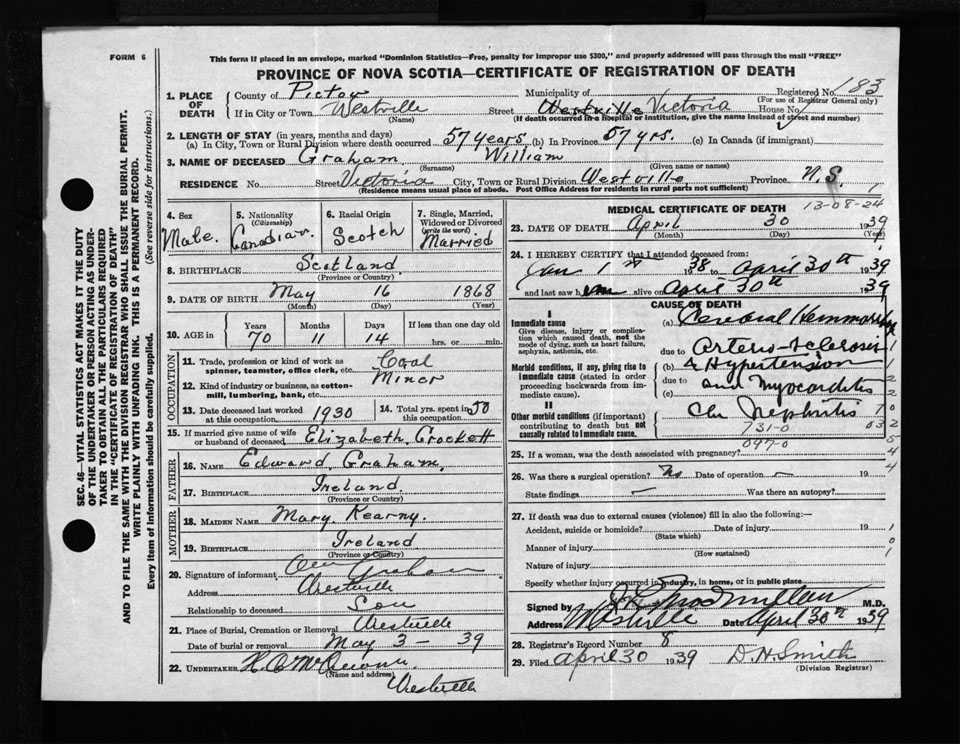 FORM 6
This form if placed in an envelope, marked "Dominion Statistics—Free, penalty for improper use $300," and properly addressed will pass through the mail "FREE"
PROVINCE OF NOVA SCOTIA—CERTIFICATE OF REGISTRATION OF DEATH
Registered No. 183
(For use of Registrar General only)
1. PLACE OF DEATH County of Pictou Municipality of
If in City or Town Westville Street Westville Victoria House No.
(Name) (If death occurred in a hospital or institution, give the name instead of street and number)
2. LENGTH OF STAY (in years, months and days)
(a) In City, Town or Rural Division where death occurred 57 years (b) In Province 57 yrs. (c) In Canada (if immigrant)
3. NAME OF DECEASED Graham William
(Surname) (Given name or names)
RESIDENCE No. Street Victoria City, Town or Rural Division Westville Province N.S.
(Residence means usual place of abode. Post Office Address for residents in rural parts not sufficient)
4. Sex Male.
5. Nationality (Citizenship) Canadian.
6. Racial Origin Scotch
7. Single, Married, Widowed or Divorced (write the word) Married
8. BIRTHPLACE Scotland
(Province or Country)
9. DATE OF BIRTH May 16 1868
(Month) (Day) (Year)
10. AGE in Years 70 Months 11 Days 14 If less than one day old hrs. or min.
OCCUPATION
11. Trade, profession or kind of work as spinner, teamster, office clerk, etc. Coal
12. Kind of industry or business, as cotton-mill, lumbering, bank, etc. Miner
13. Date deceased last worked at this occupation 1930
14. Total yrs. spent in this occupation 50
15. If married give name of wife or husband of deceased Elizabeth Crockett
FATHER
16. NAME Edward Graham.
17. BIRTHPLACE Ireland
(Province or Country)
MOTHER
18. MAIDEN NAME Mary Kearny.
19. BIRTHPLACE Ireland
(Province or Country)
20. Signature of informant Graham
Address Westville
Relationship to deceased Son
21. Place of Burial, Cremation or Removal Westville
Date of burial or removal May 3 - 39
22. UNDERTAKER
(Name and address)
Westville
MEDICAL CERTIFICATE OF DEATH 13-08-24
23. DATE OF DEATH April 30 1939
(Month) (Day) (Year)
24. I HEREBY CERTIFY that I attended deceased from
Jan 1st 1938 to April 30th 1939
and last saw him alive on April 30th 1939
CAUSE OF DEATH
I
Immediate cause
Give disease, injury or complication which caused death, not the mode of dying, such as heart failure, asphyxia, asthenia, etc.
(a) Cerebral Hemmorrhage
due to Arterio-sclerosis
Morbid conditions, if any, giving rise to immediate cause (stated in order proceeding backwards from immediate cause).
(b) & Hypertension
due to and Myocarditis
(c)
II
Other morbid conditions (if important) contributing to death but not causally related to immediate cause.
Chr Nephritis
731-0
097-0
25. If a woman, was the death associated with pregnancy?
26. Was there a surgical operation? No Date of operation 19
State findings Was there an autopsy?
27. If death was due to external causes (violence) fill in also the following:—
Accident, suicide or homicide? Date of injury 19
(State which)
Manner of injury
(How sustained)
Nature of injury
Specify whether injury occurred in industry, in home, or in public place
Signed by M.D.
Address Westville Date April 30th 1939
28. Registrar's Record Number 8
29. Filed April 30 1939 D. H. Smith
(Division Registrar)
SEC. 46—VITAL STATISTICS ACT MAKES IT THE DUTY OF THE UNDERTAKER OR PERSON ACTING AS UNDERTAKER TO OBTAIN ALL THE PARTICULARS REQUIRED IN THE "CERTIFICATE OF REGISTRATION OF DEATH"
AND TO FILE THE SAME WITH THE DIVISION REGISTRAR WHO SHALL ISSUE THE BURIAL PERMIT.
WRITE PLAINLY WITH UNFADING INK. THIS IS A PERMANENT RECORD.
Every item of information should be carefully supplied. (See reverse side for instructions.)